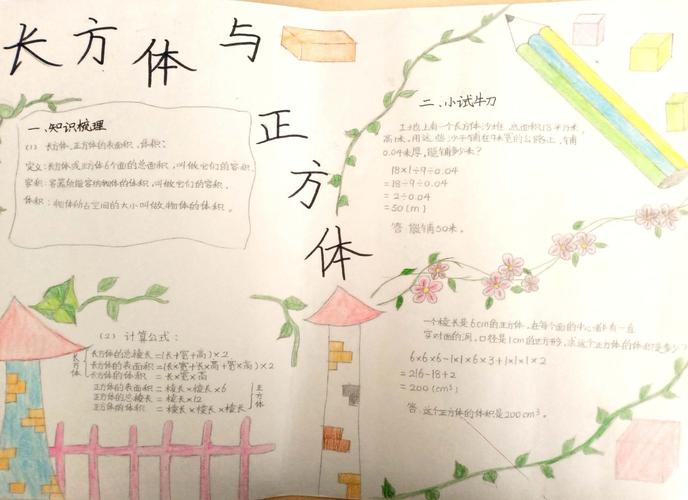 长方体与正方体
一、知识梳理
(1) 长方体、正方体的表面积、体积：
定义：长方体或正方体6个面的总面积，叫做它们的容积.
容积：容器所能容纳物体的体积，叫做它们的容积.
体积：物体所占空间的大小叫做物体的体积。
(2) 计算公式：
长方体
长方体的总棱长=(长+宽+高)×2
长方体的表面积=(长×宽+长×高+宽×高)×2
长方体的体积 =长×宽×高
正方体的表面积=棱长×棱长×6
正方体的总棱长=棱长×12
正方体的体积 =棱长×棱长×棱长
正方体
二、小试牛刀
工地上有一个长方体沙堆，底面积18平方米，
高1米，用这些沙子铺在9米宽的公路上，铺
0.04米厚，能铺多少米？
18×1÷9÷0.04
=18÷9÷0.04
=2÷0.04
=50(m)
答：能铺50米。
一个棱长是6cm的正方体，在每个面的中心都有一直
穿对面的洞，口径是1cm的正方形，求这个正方体的体积是多少？
6×6×6-1×1×6×3+1×1×1×2
=216-18+2
=200(cm³)
答：这个正方体的体积是200cm³。